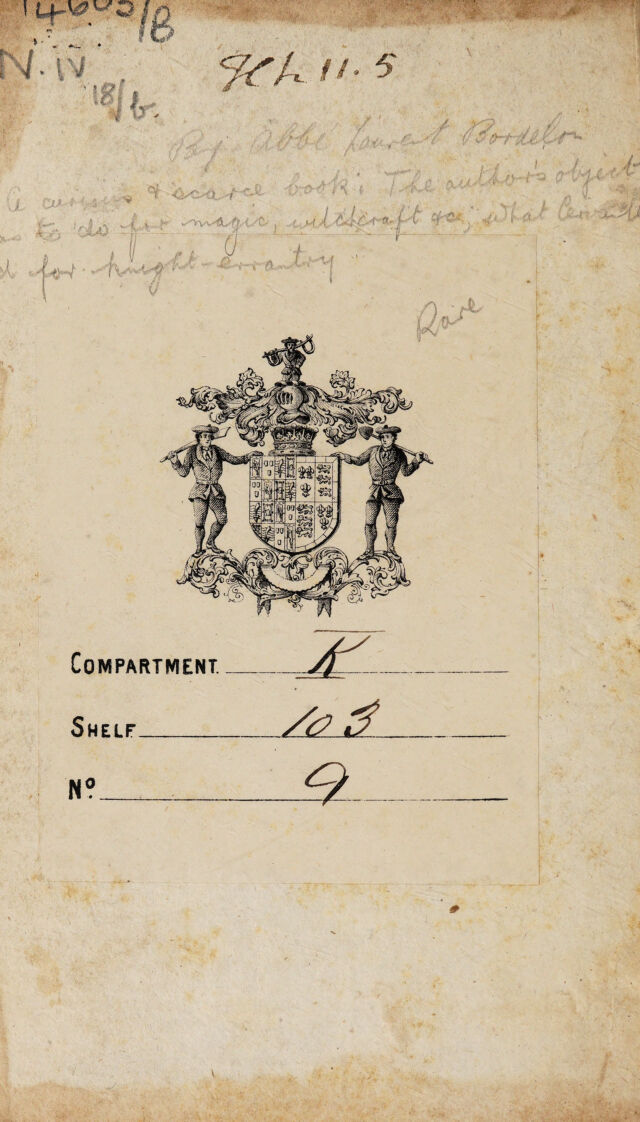 14605/B
N. IV
18/6.
Hh 11.5
By Abbé Laurent Bordelon
A curious & scarce book: The author's object
as to do for magic, witchcraft &c; what Cervant
d for knight-errantry
Rare
COMPARTMENT K
SHELF 103
No. 9